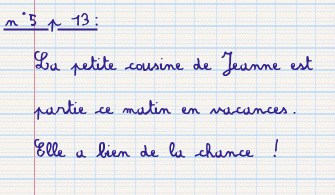 n°5 p 13 :
La petite cousine de Jeanne est
partie ce matin en vacances.
Elle a bien de la chance !